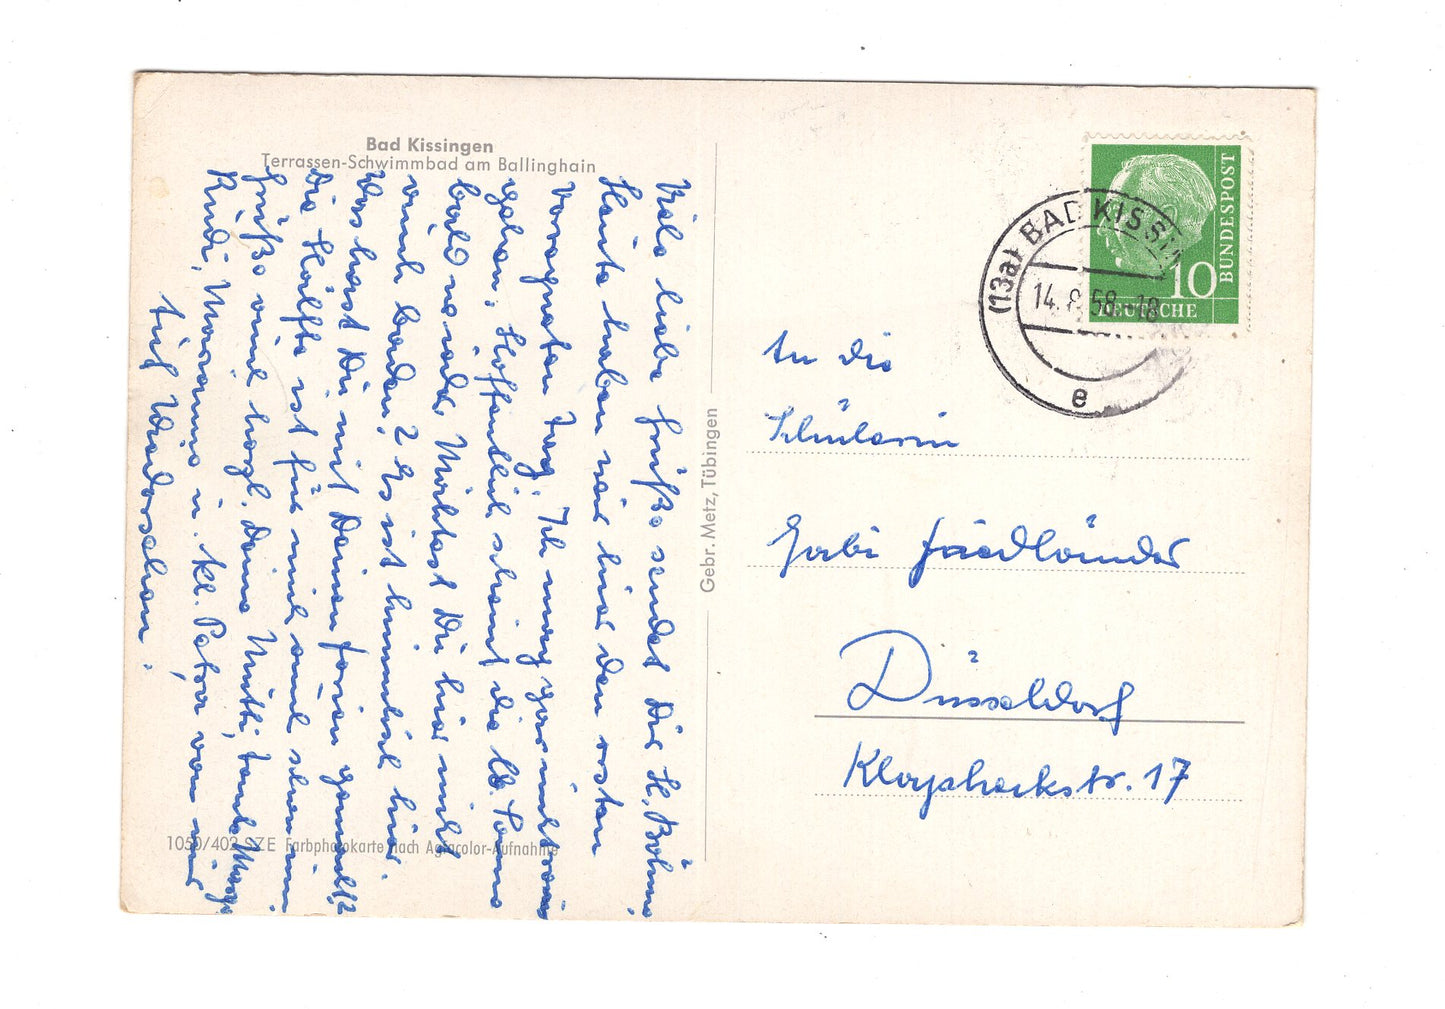 Bad Kissingen
Terrassen-Schwimmbad am Ballinghain
Viele liebe Grüße sendet Dir H. Böhme,
Heute haben wir hier den ersten
verregneten Tag. Ich mag gar nicht rein
gehen. Hoffentlich scheint die lb. Sonne
bald wieder. Möchtest Du hier nicht
auch baden? Es ist himmlisch hier.
Was hast Du mit Deinen Ferien gemacht?
Die Hälfte ist für mich auch schon um
Grüße auch herzl. Deine Mutti, Tante
Rudi, Marianne u. kl. Peter von mir
Auf Wiedersehen.
1050/402 SZE Farbphotokarte nach Agfacolor-Aufnahme
Gebr. Metz, Tübingen
(13a) BAD KISSIN
14. 8. 58 -18
e
10
BUNDESPOST
DEUTSCHE
An die
Schülerin
Gabi Friedländer
Düsseldorf
Klapheckstr. 17